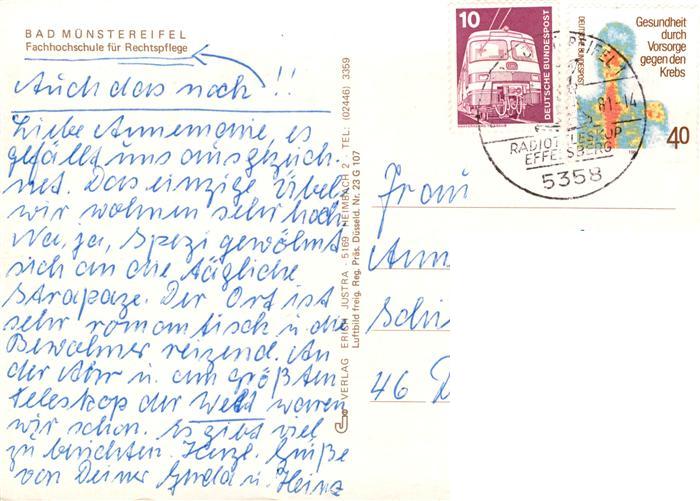 BAD MÜNSTEREIFEL
Fachhochschule für Rechtspflege
Auch das noch!!
Liebe Annemarie, es
gefällt uns ausgezeich-
net. Das einzige Übel
wir wohnen sehr hoch
Na, ja, Spezi gewöhnt
sich an die tägliche
Strapaze. Der Ort ist
sehr romantisch u. die
Bewohner reizend. An
der Ahr u. am größten
Teleskop der Welt waren
wir schon. Es gibt viel
zu berichten. Herzl. Grüße
von Deiner Gerda u. Heinz
VERLAG ERICH JUSTRA · 5169 HEIMBACH 2 · TEL: (02446) 3359
Luftbild freig. Reg. Präs. Düsseld. Nr. 23 G 107
10
DEUTSCHE BUNDESPOST
DEUTSCHE BUNDESPOST
Gesundheit
durch
Vorsorge
gegen den
Krebs
40
81-14
RADIOTELESKOP
EFFELSBERG
5358
Frau
Ann
Schi
46 D